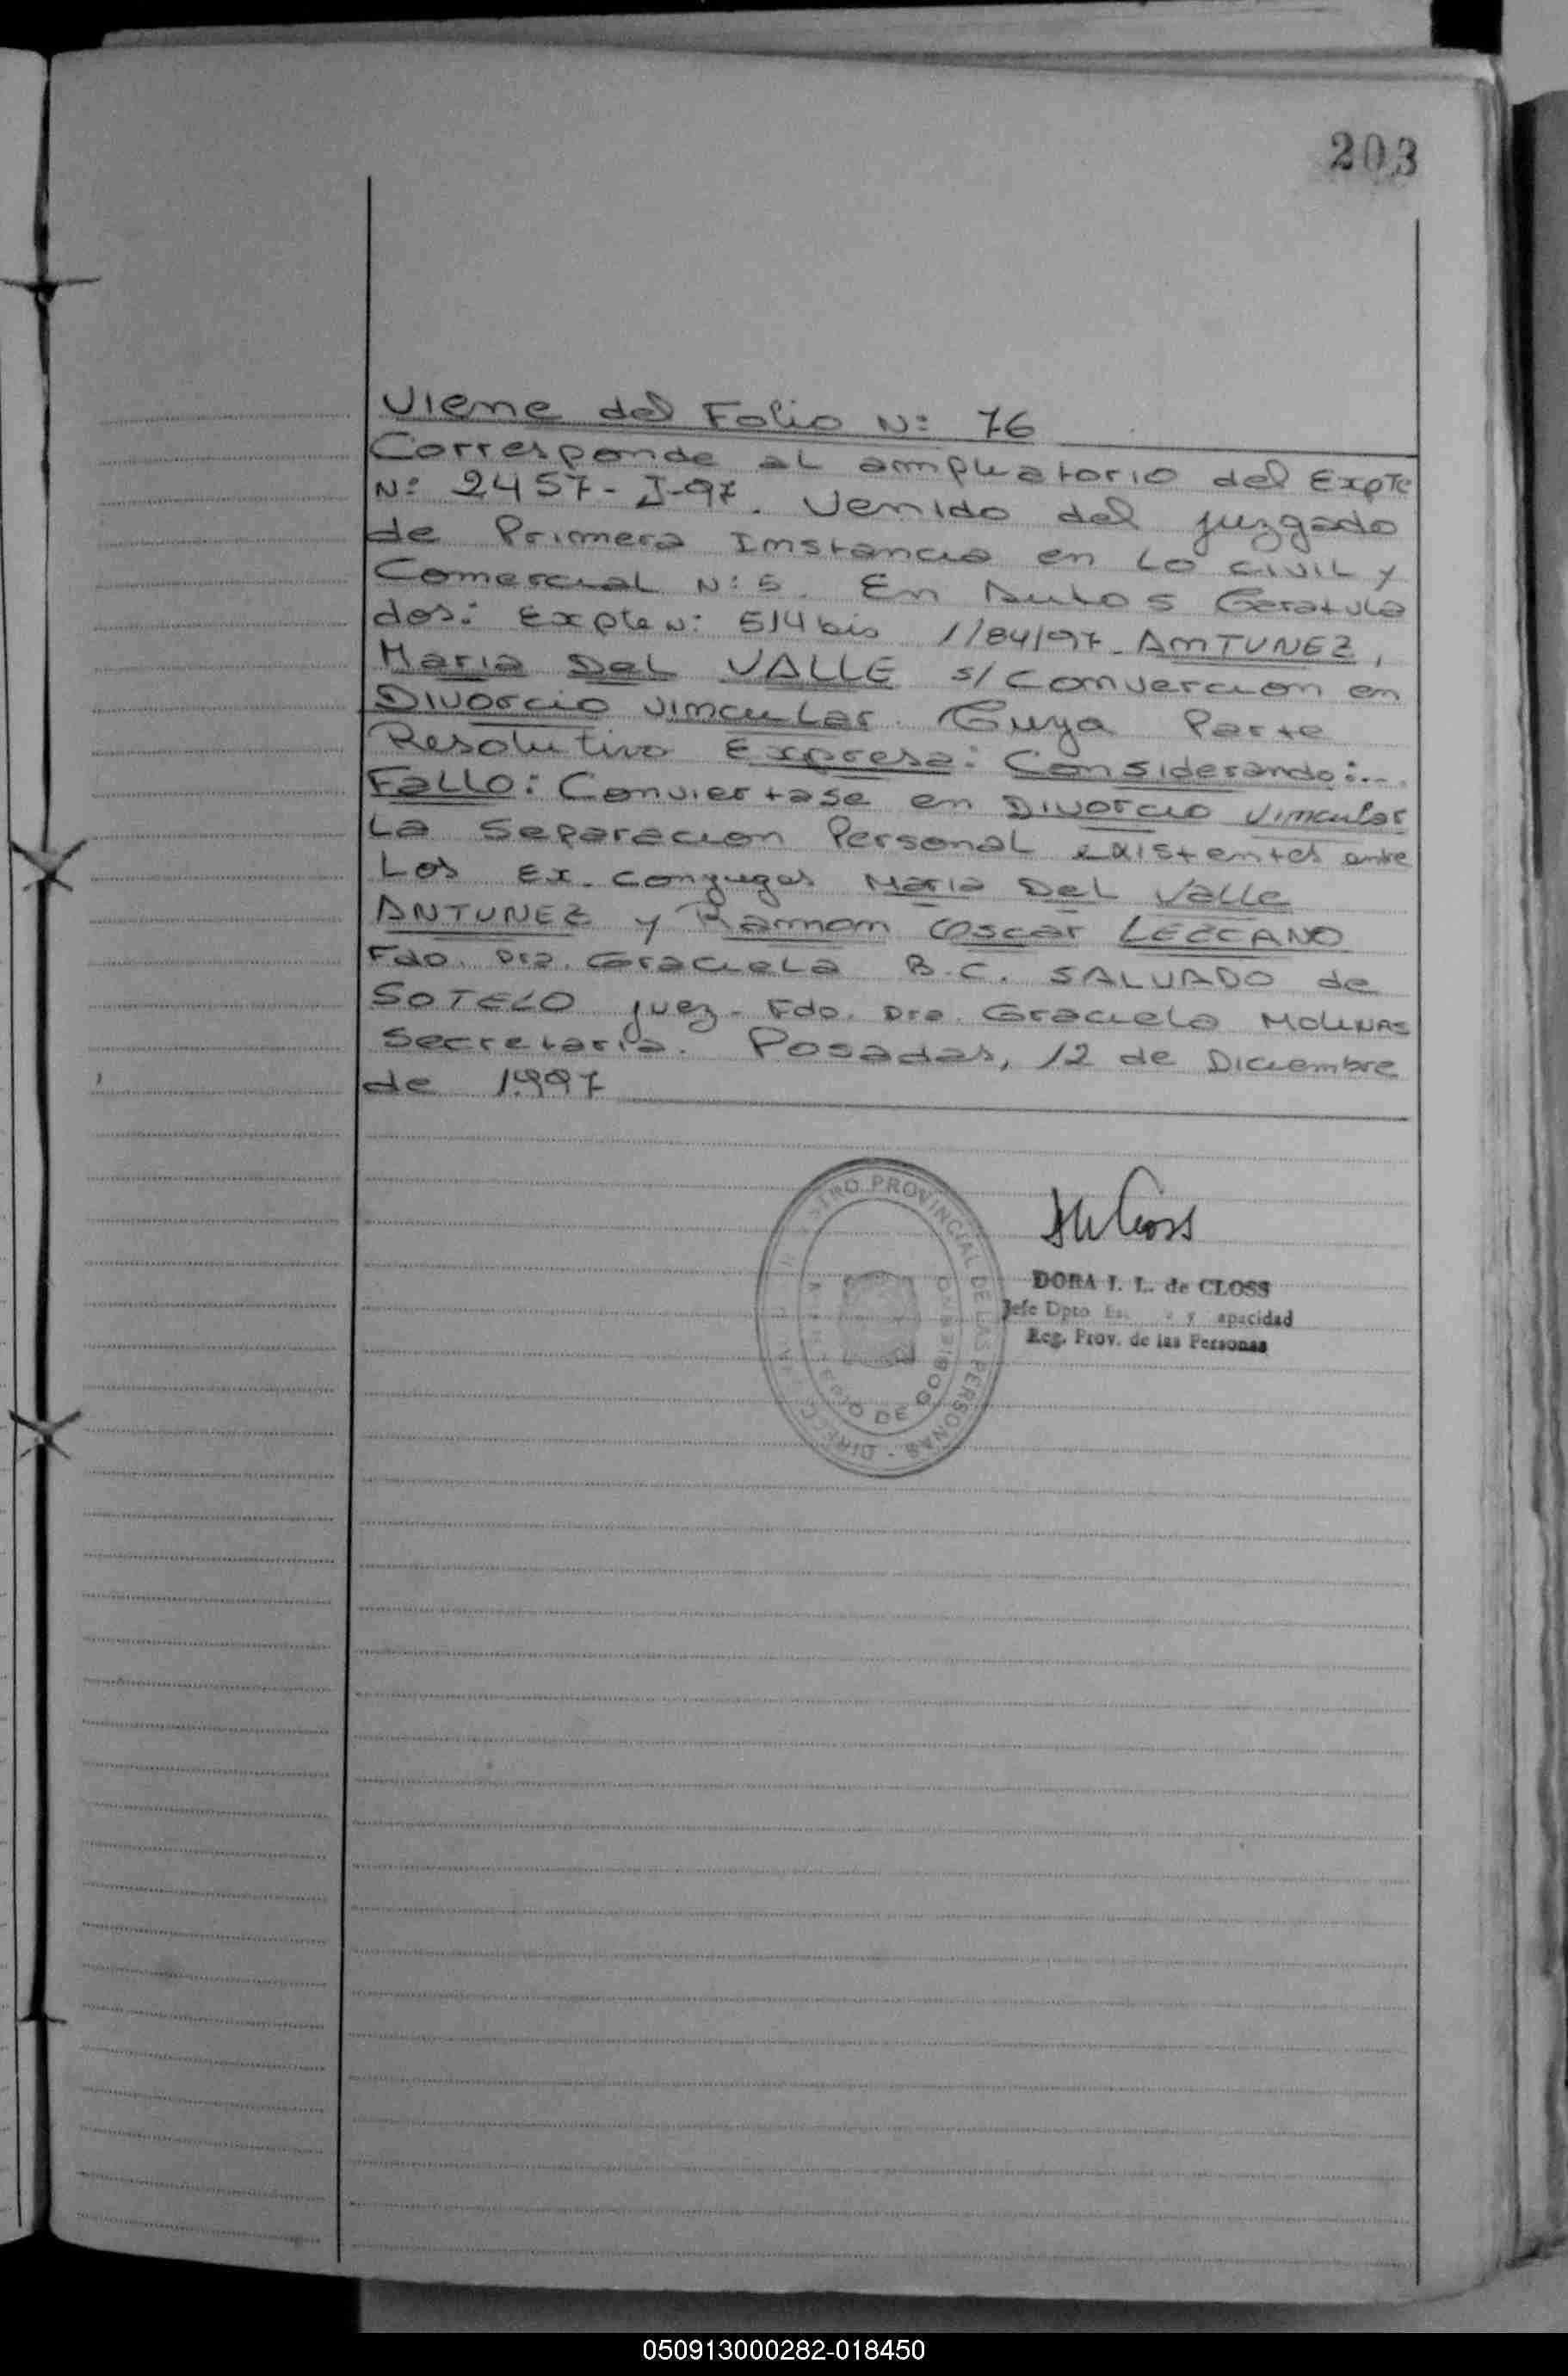 203
Viene del Folio N: 76
Corresponde al ampliatorio del Expte
N: 2457-I-97. Venido del juzgado
de Primera Instancia en Lo civil y
Comercial N: 5. En Autos Caratula
dos: Expte N: 514 bis 1/84/97_ ANTUNEZ,
Maria Del VALLE s/ Convercion en
Divorcio vincular. Cuya Parte
Resolutiva Expresa: Considerando:...
Fallo: Conviertase en Divorcio Vincular
La Separacion Personal existentes entre
Los Ex. conyuges Maria Del Valle
ANTUNEZ y Ramon Oscar LEZCANO
Fdo. Dra. Graciela B.C. SALVADO de
SOTELO juez- Fdo. Dra. Graciela MOLINAS
Secretaria. Posadas, 12 de Diciembre
de 1.997
PROVINCIAL DE LAS PERSONAS -
DE GOBIERNO
DORA I. L. de CLOSS
Jefe Dpto y apacidad
Reg. Prov. de las Personas
050913000282-018450